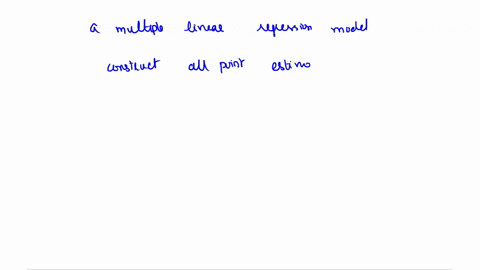 a multiple linear regression model
construct all point estimo